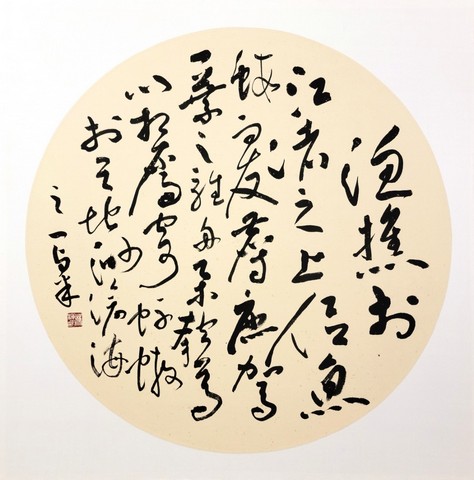 漁樵於
江渚之上侶魚
蝦而友麋鹿駕
一葉之扁舟舉匏尊
以相屬寄蜉蝣
於天地渺滄海
之一粟